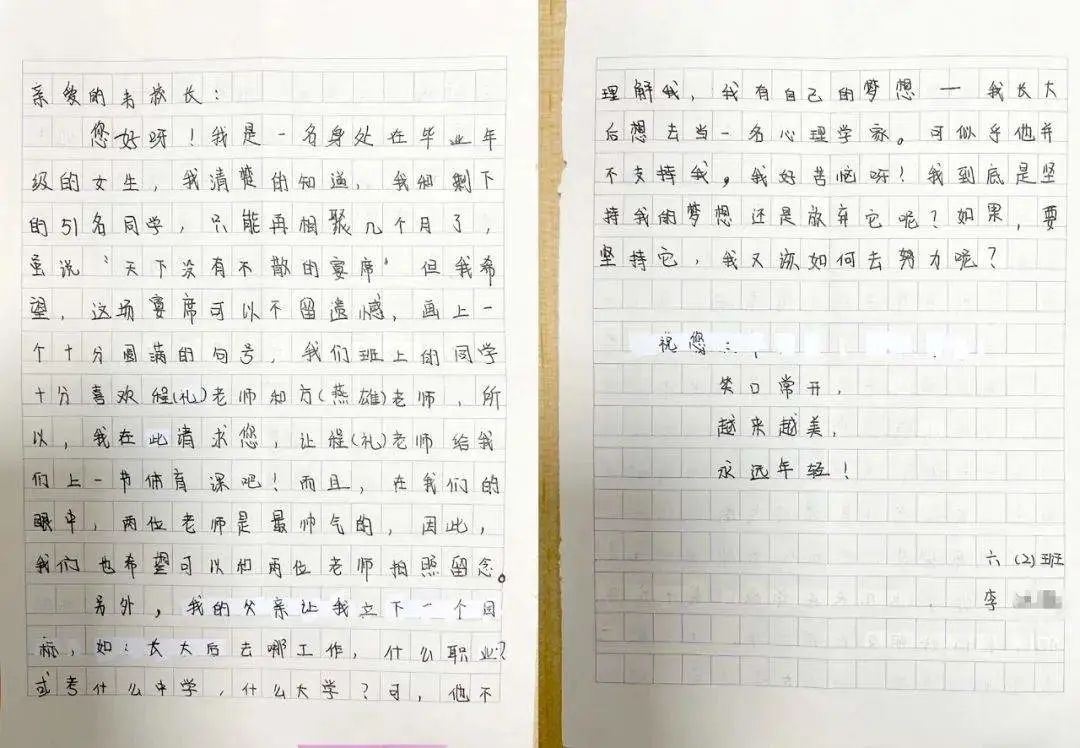 亲爱的未校长：
您好呀！我是一名身处在毕业年
级的女生，我清楚的知道，我和剩下
的51名同学，只能再相聚几个月了，
虽说“天下没有不散的宴席”但我希
望，这场宴席可以不留遗憾，画上一
个十分圆满的句号，我们班上的同学
十分喜欢程(礼)老师和方(燕雄)老师，所
以，我在此请求您，让程(礼)老师给我
们上一节体育课吧！而且，在我们的
眼中，两位老师是最帅气的，因此，
我们也希望可以和两位老师拍照留念。
另外，我的父亲让我立下一个目
标，如：长大后去哪工作，什么职业？
或考什么中学，什么大学？可，他不
理解我，我有自己的梦想——我长大
后想去当一名心理学家。可似乎他并
不支持我。我好苦恼呀！我到底是坚
持我的梦想还是放弃它呢？如果，要
坚持它，我又该如何去努力呢？
祝您：
笑口常开，
越来越美，
永远年轻！
六(2)班
李